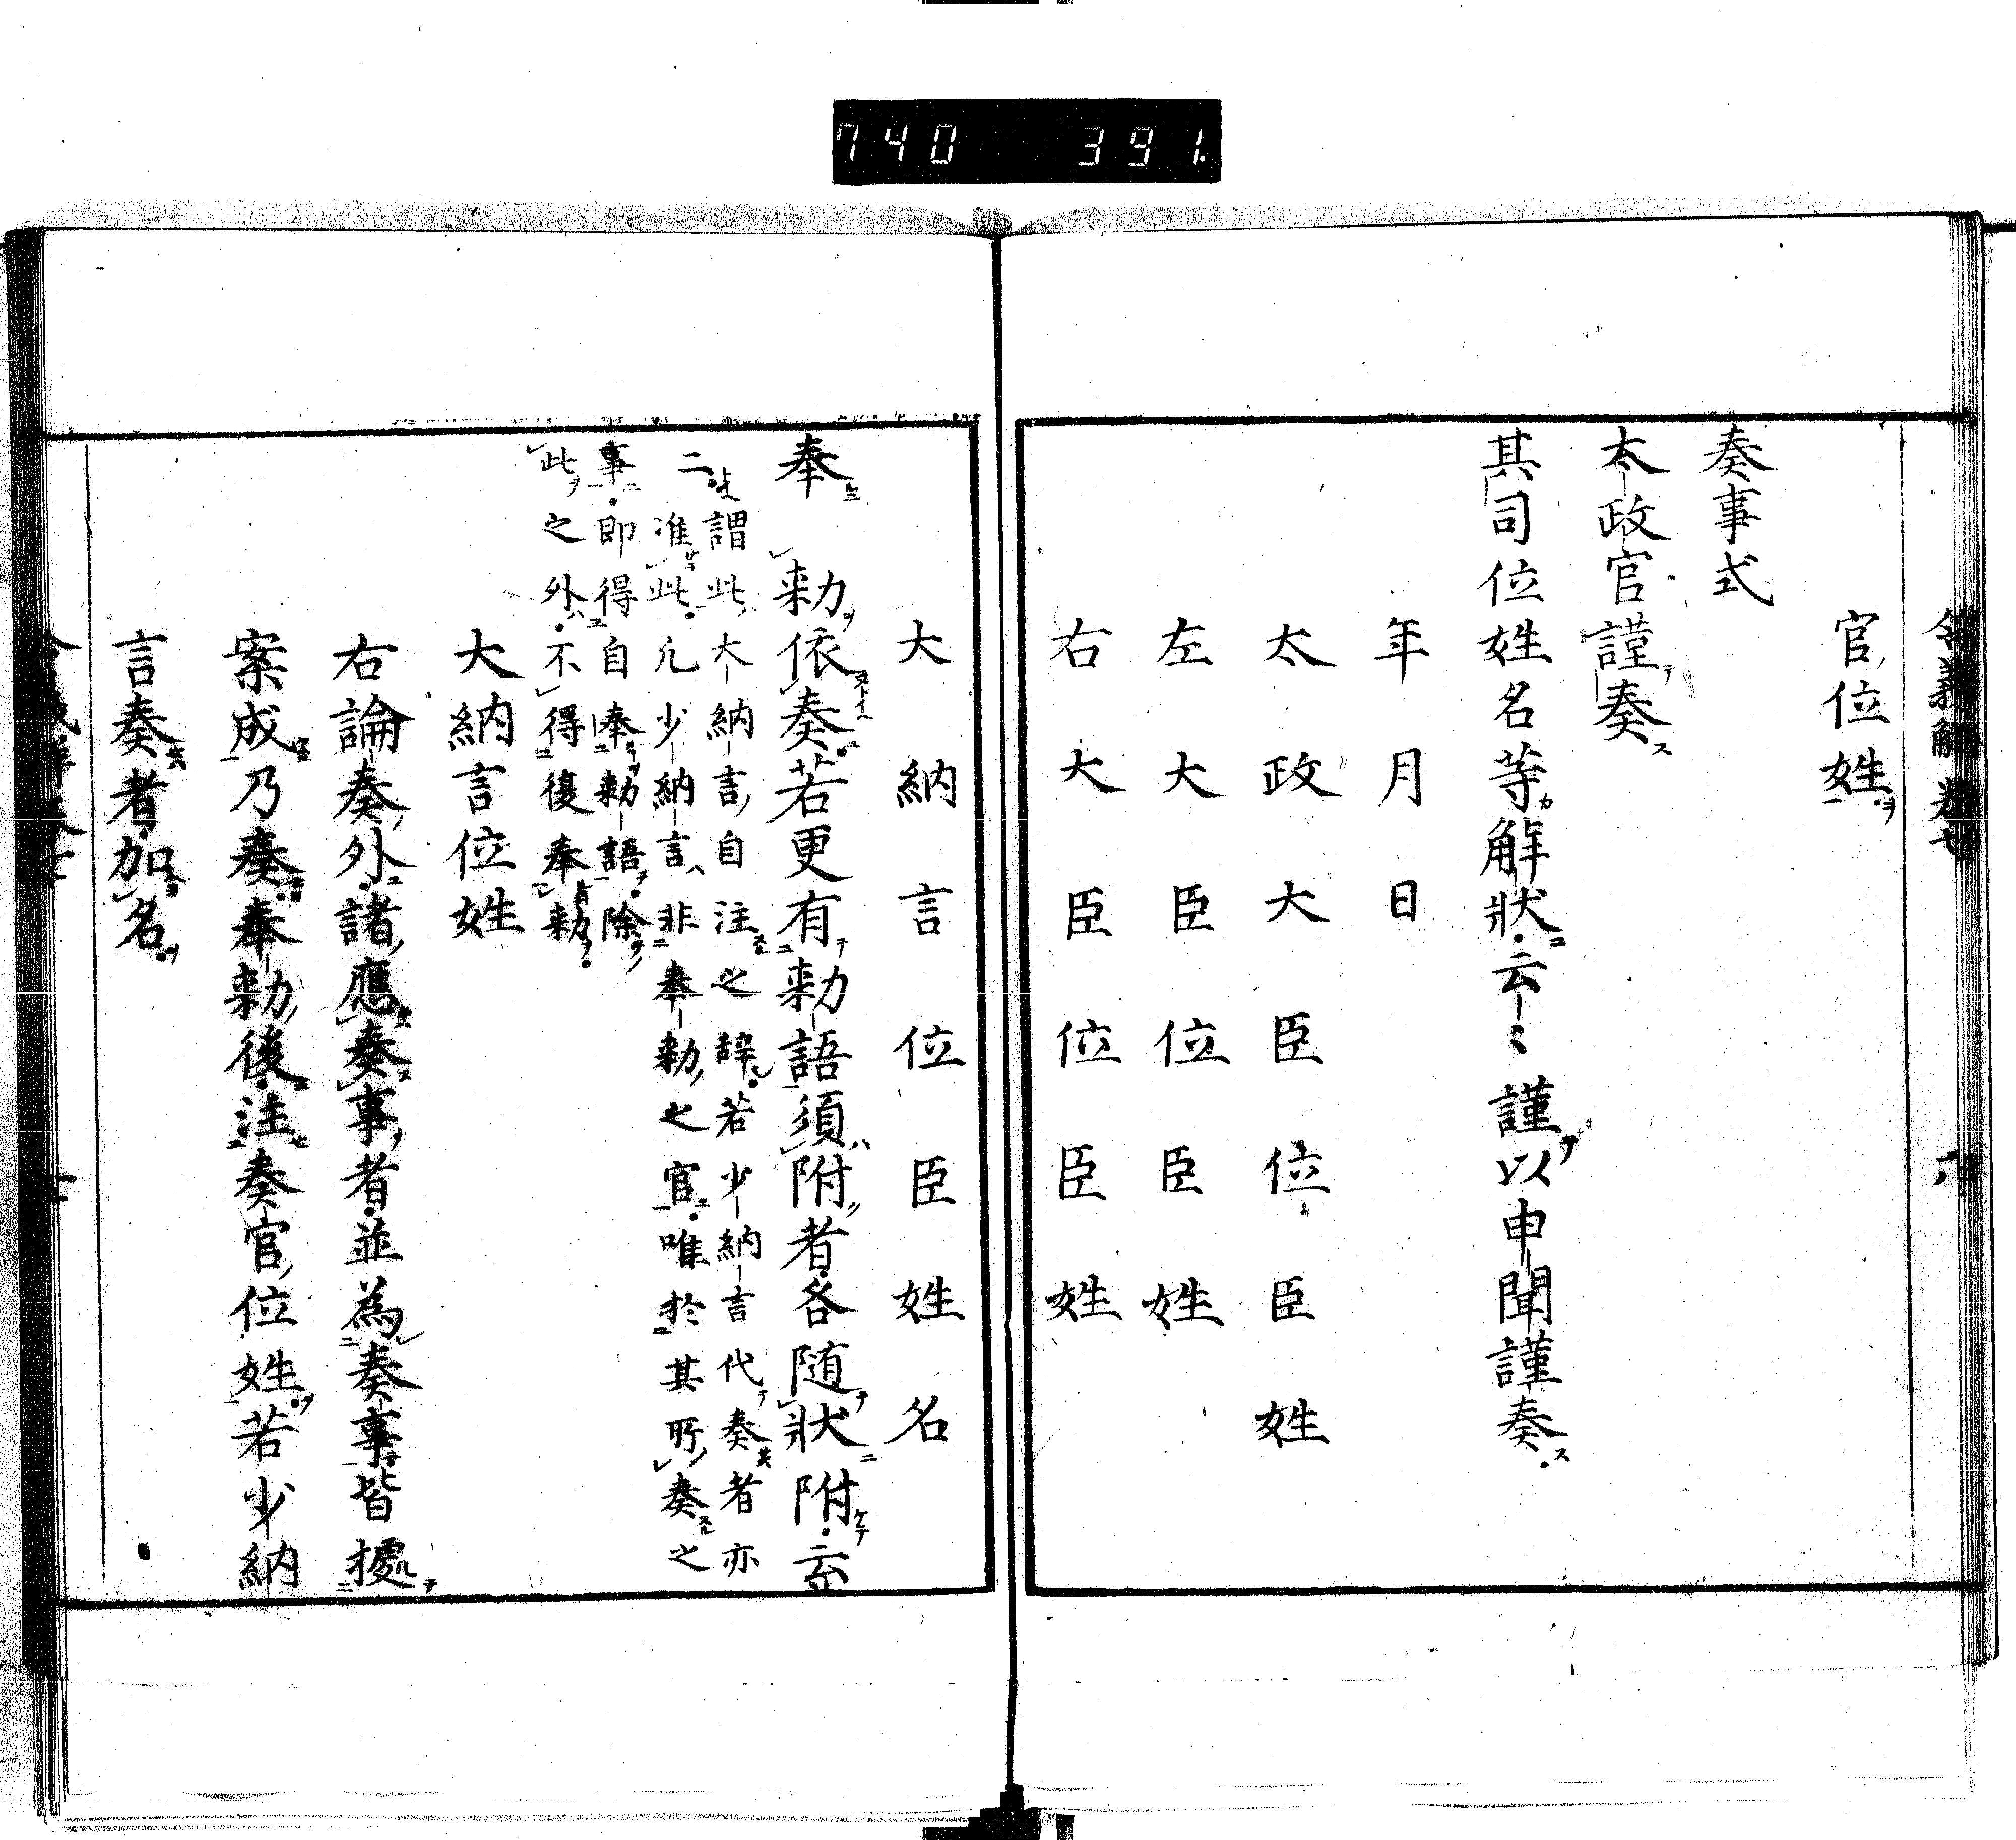 740 391
令義解 卷七 六
官位姓
奏事式
太政官謹奏
其司位姓名等解狀云々謹以申聞謹奏
年月日
太政大臣位臣姓
左大臣位臣姓
右大臣位臣姓
大納言位臣姓名
奉
勅依奏若更有勅語須附者各随狀附云
云
謂此大納言自注之辞若少納言代奏者亦
准此凡少納言非奉勅之官唯於其所奏之
事即得自奉勅語除
此之外不得復奉勅
大納言位姓
右論奏外諸應奏事者並為奏事皆據
案成乃奏奉勅後注奏官位姓若少納
言奏者加名